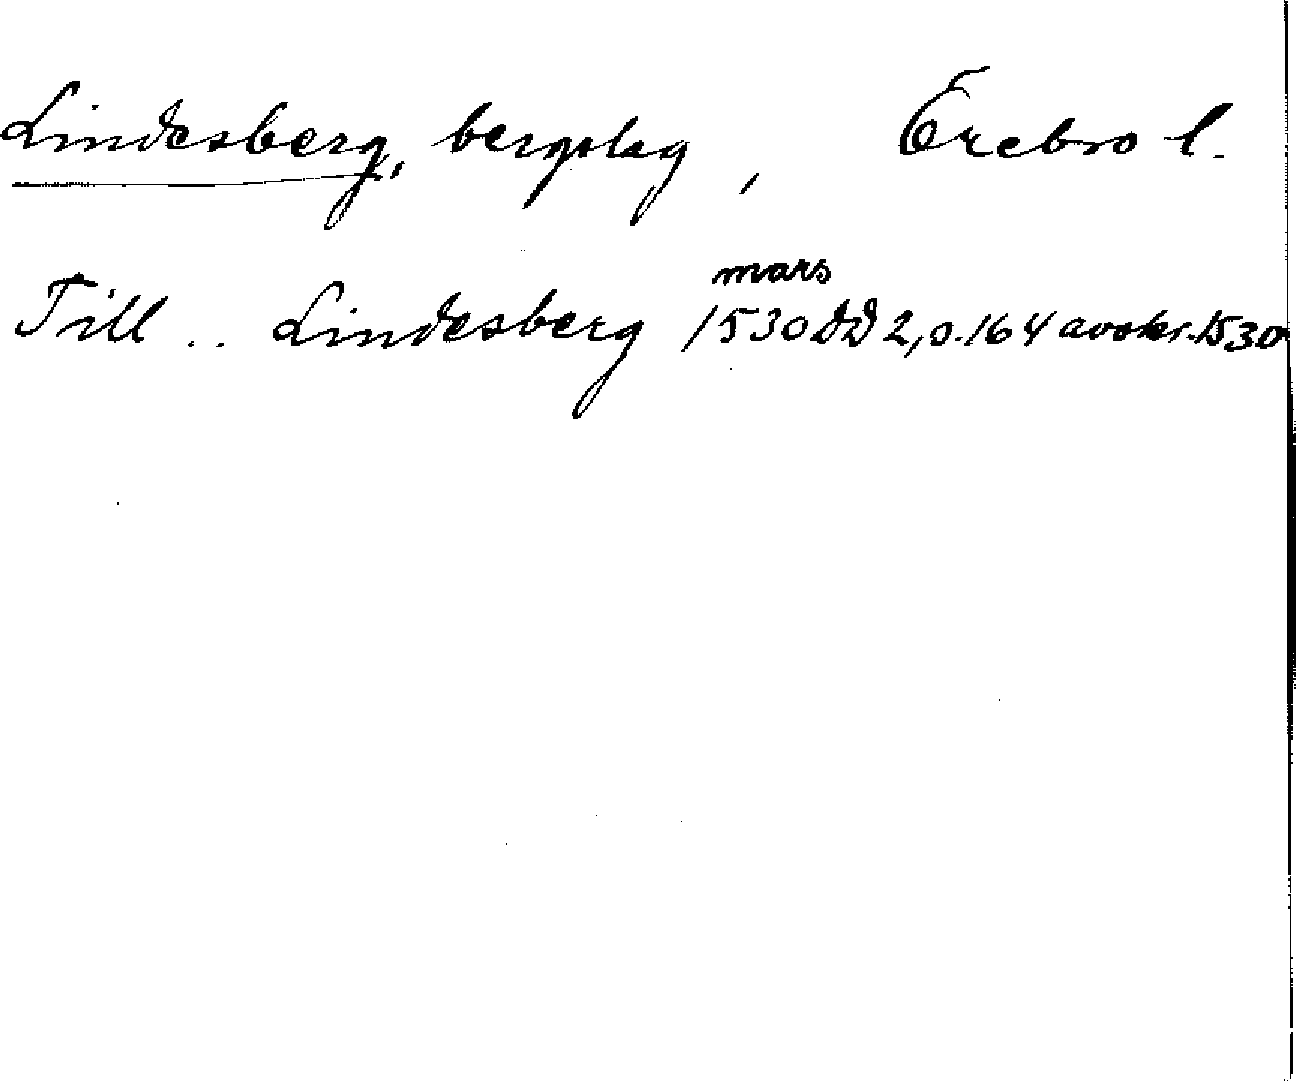 Lindesberg, bergslag, Örebro l.
mars
Till .. Lindesberg 1530 DD 2, s. 164 avskr. 1530